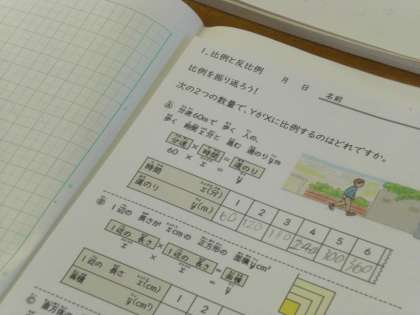 1.比例と反比例
月 日
名前
比例を振り返ろう!
次の2つの数量で、YがXに比例するのはどれですか。
あ 分速60mで 歩く 人の、
歩く 時間x分と 進む 道のりym
分速×時間=道のり
60 × x = y
時間 x(分) 1 2 3 4 5 6
道のり y(m) 60 120 180 240 300 360
1辺の 長さが xcmの 正方形の 面積ycm²
1辺の 長さ×1辺の 長さ=面積
x × x = y
1辺の 長さ x(cm) 1 2
面積 y(cm²)